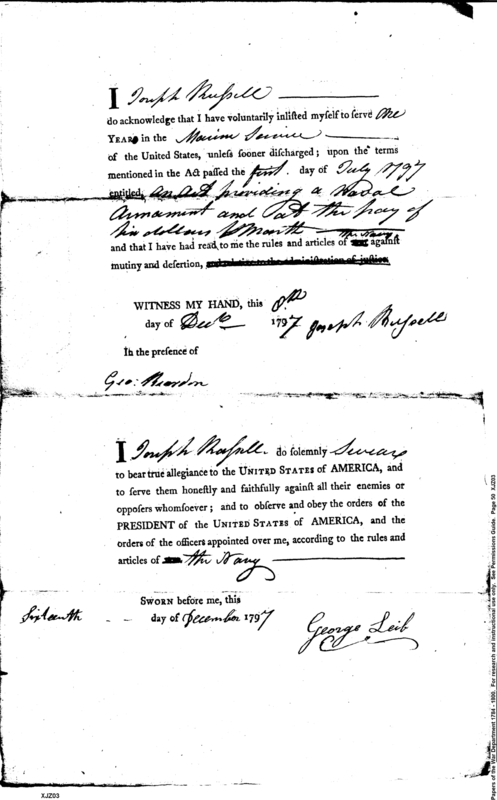 I Joseph Russell
do acknowledge that I have voluntarily inlisted myself to serve One
YEAR in the Marine Service
of the United States, unless sooner discharged; upon the terms
mentioned in the Act passed the first day of July 1797
entitled, an Act providing a Naval
Armament and at the pay of
dollars Month
and that I have had read to me the rules and articles of the Navy against
mutiny and desertion, and relative to the administration of justice
WITNESS MY HAND, this 8th
day of Decr 1797 Joseph Russell
In the presence of
Geo: Reardon
I Joseph Russell do solemnly Swear
to bear true allegiance to the UNITED STATES of AMERICA, and
to serve them honestly and faithfully against all their enemies or
opposers whomsoever; and to observe and obey the orders of the
PRESIDENT of the UNITED STATES of AMERICA, and the
orders of the officers appointed over me, according to the rules and
articles of the Navy
SWORN before me, this
Sixteenth day of December 1797
George Leib
XJZ03
Papers of the War Department 1784 - 1800. For research and instructional use only. See Permissions Guide. Page 50 XJZ03